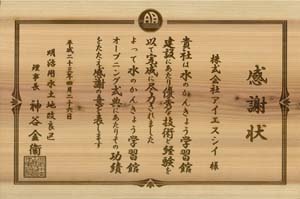 感謝状
株式会社アイエスシイ 様
貴社は水のかんきょう学習館
建設にあたり優秀な技術と経験を
以て完成に尽力されました
よって水のかんきょう学習館
オープニング式典にあたりその功績
をたたえ感謝の意を表します
平成二十三年四月二十六日
明治用水土地改良区
理事長 神谷金衛